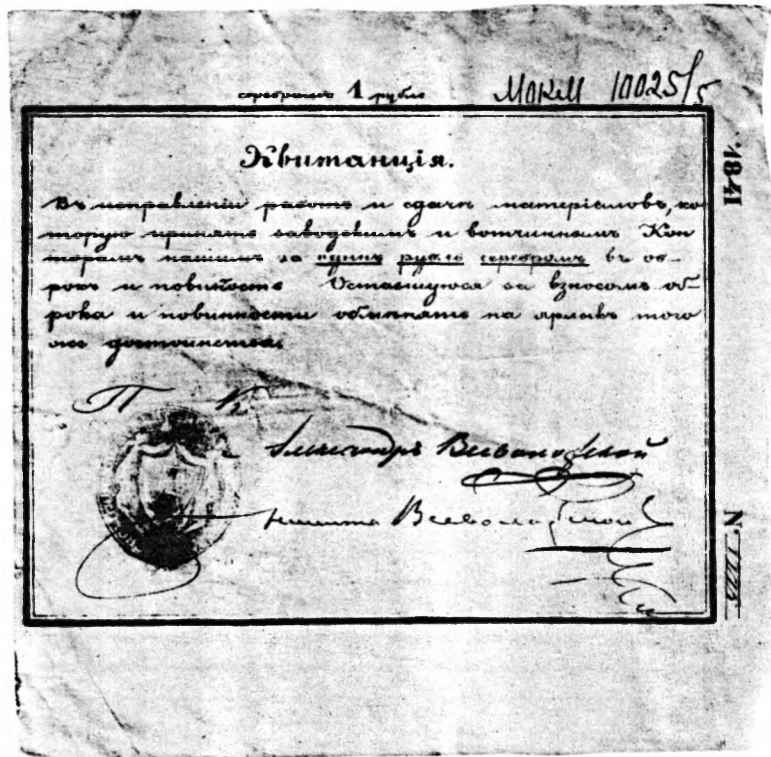 серебромъ 1 рубль
МОКМ 10025/5
Квитанція.
1841
Въ исправленіи работъ и сдачи матеріаловъ, ко
торую принять заводскимъ и вотчиннымъ Кон
торамъ нашимъ за одинъ рубль серебромъ въ об-
рокъ и повиность Оставшуюся за взносомъ об-
рока и повинности обмѣнять на ярлыкъ того
же достоинства
П К
Александръ Всеволожской
Никита Всеволожской
N